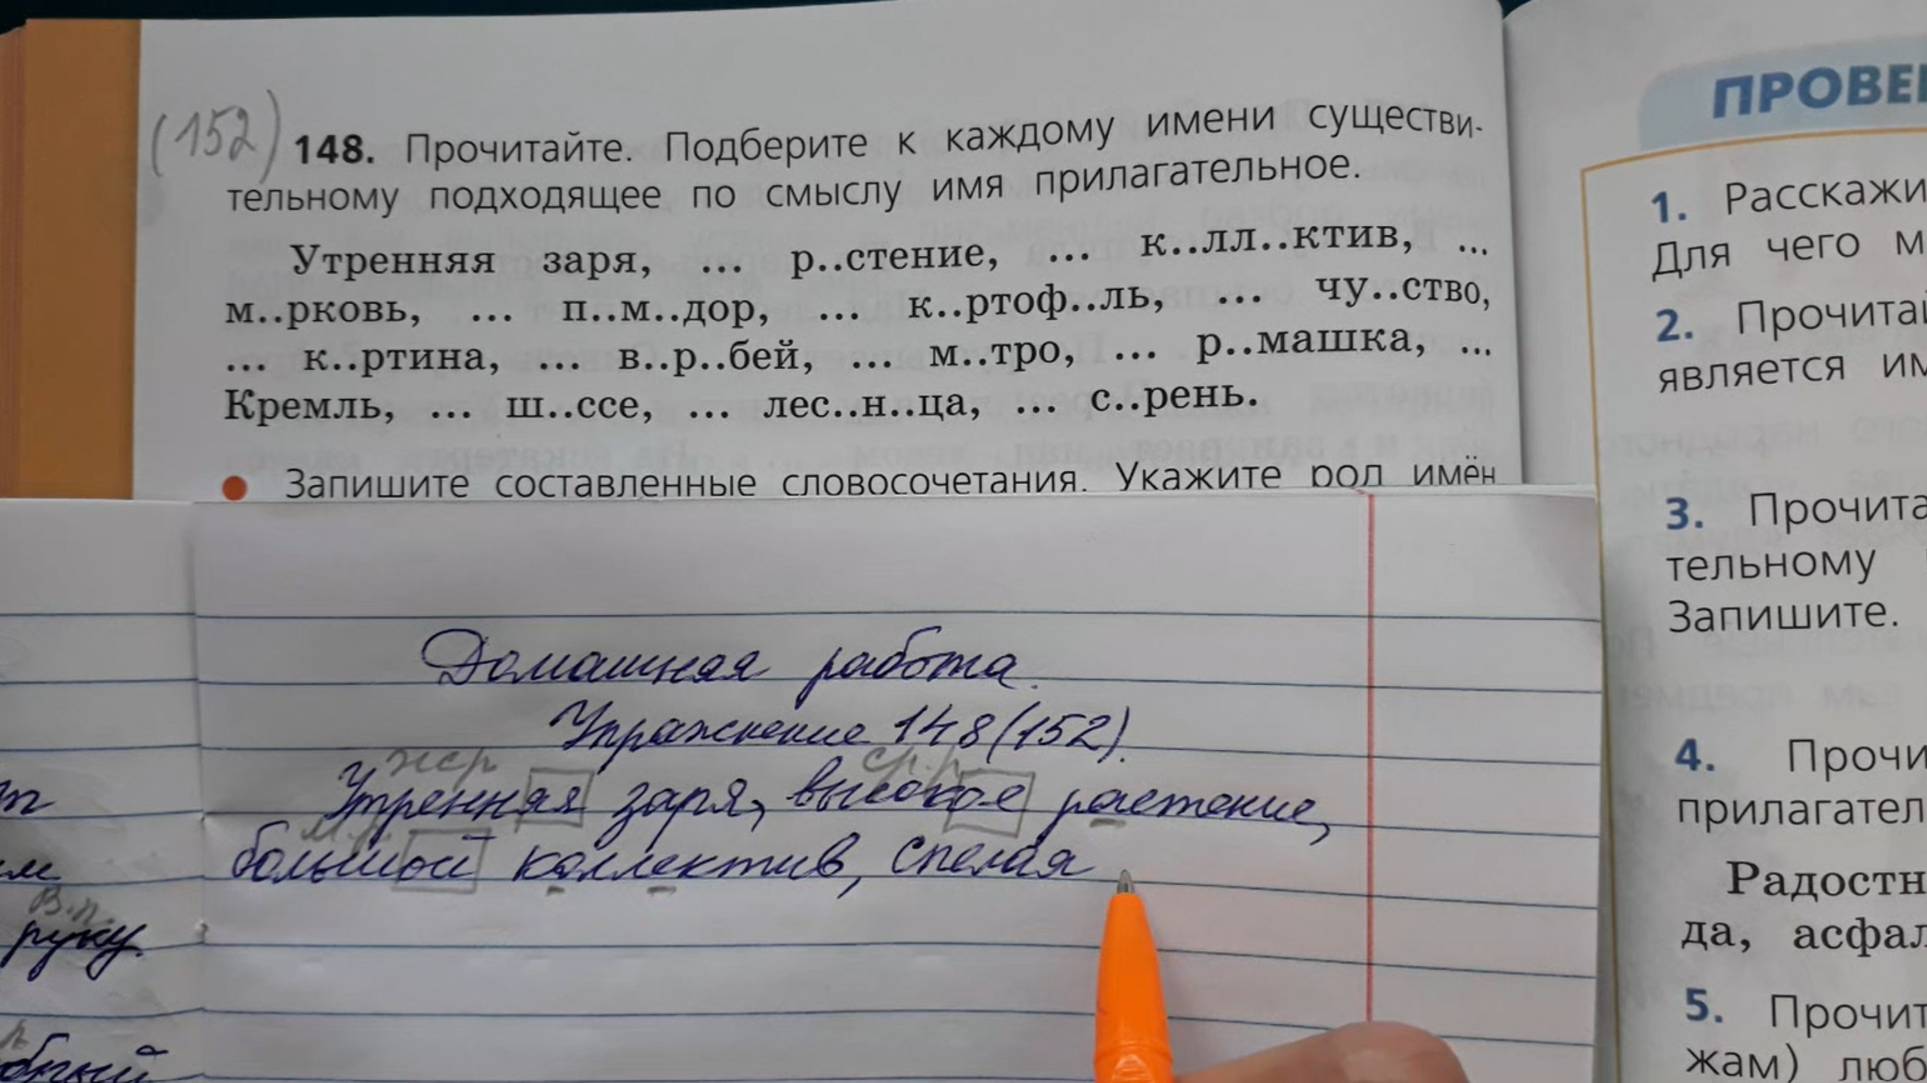 (152) 148. Прочитайте. Подберите к каждому имени существи-
тельному подходящее по смыслу имя прилагательное.
Утренняя заря, ... р..стение, ... к..лл..ктив, ...
м..рковь, ... п..м..дор, ... к..ртоф..ль, ... чу..ство,
... к..ртина, ... в..р..бей, ... м..тро, ... р..машка, ...
Кремль, ... ш..ссе, ... лес..н..ца, ... с..рень.
Запишите составленные словосочетания. Укажите род имён
Домашняя работа.
Упражнение 148 (152).
жр ср.р.
Утренняя заря, высокое растение,
м.р.
большой коллектив, спелая
т
ем
В.п.
руку
бный
ПРОВЕ
1. Расскажи
Для чего м
2. Прочитай
является им
3. Прочита
тельному
Запишите.
4. Прочи
прилагател
Радостн
да, асфал
5. Прочит
жам) люб